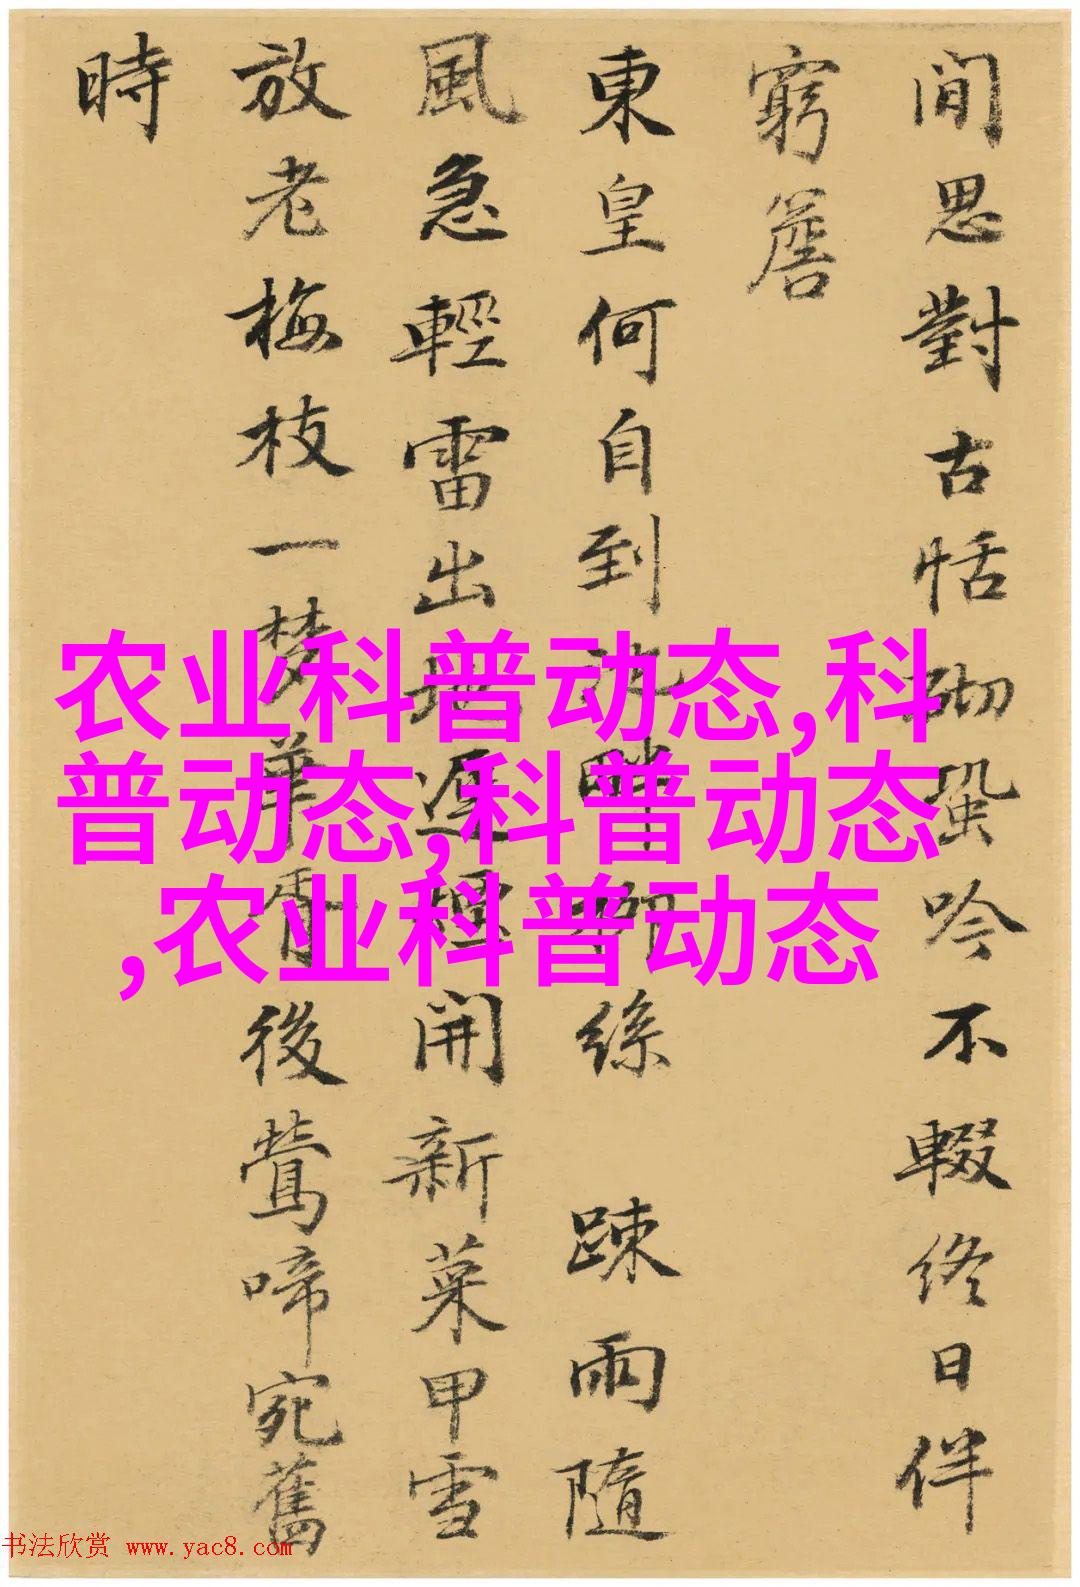 閒思對古恬砌蛩吟不輟終日伴
窮簷
東皇何自到池畔柳絲 踈雨隨
風急輕雷出地遲煙開新菜甲雪
放老梅枝一夢華胥後鶯啼宛舊
時
农业科普动态,科
普动态,科普动态
,农业科普动态
书法欣赏 www.yac8.com